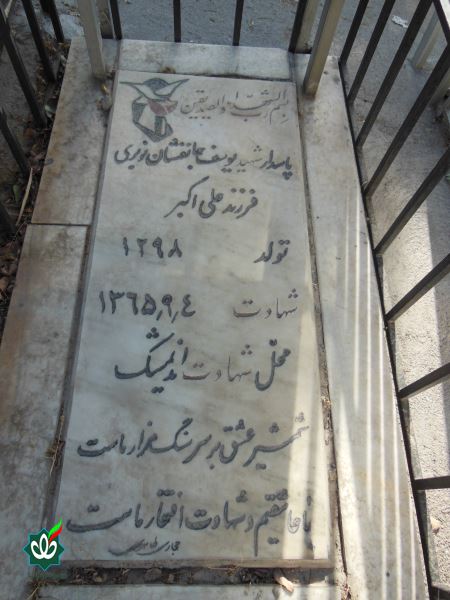 بسم رب الشهداء والصدیقین
پاسدار شهید یوسف جانفشان نوبری
فرزند علی اکبر
تولد ۱۲۹۸
شهادت ۱۳۶۵٫۹٫۴
محل شهادت اندیمشک
شمشیر عشق بر سر سنگ مزار ماست
ما عاشقیم و شهادت افتخار ماست